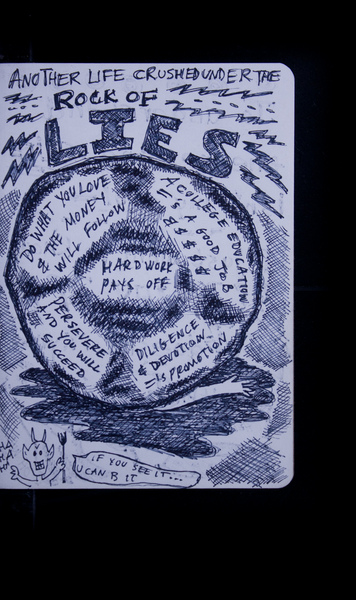 ANOTHER LIFE CRUSHED UNDER THE
ROCK OF
LIES
DO WHAT YOU LOVE
& THE MONEY
WILL FOLLOW
A COLLEGE EDUCATION
= A GOOD JOB
$ $ $ $ $
HARD WORK
PAYS OFF
PERSEVERE
AND YOU WILL
SUCCEED
DILIGENCE
& DEVOTION
= PROMOTION
HA
HA
HA
IF YOU SEE IT...
U CAN B IT